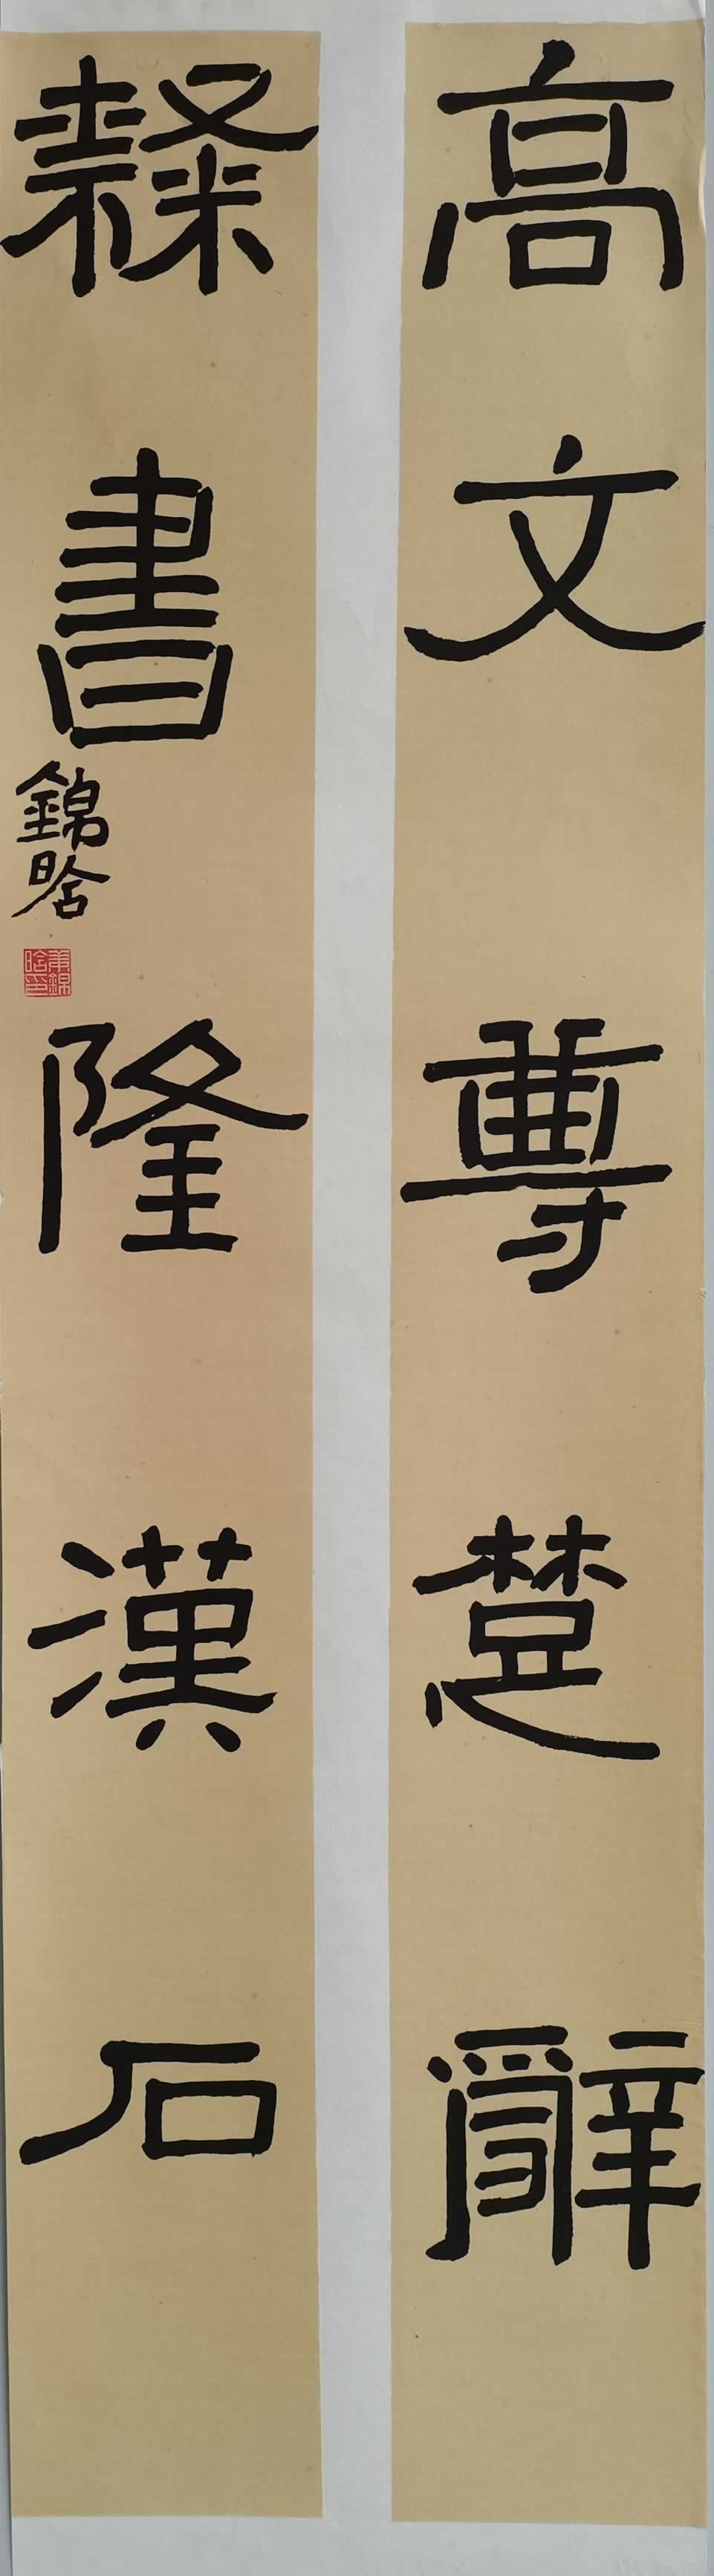 高文尊楚辭
隸書隆漢石
錦晗